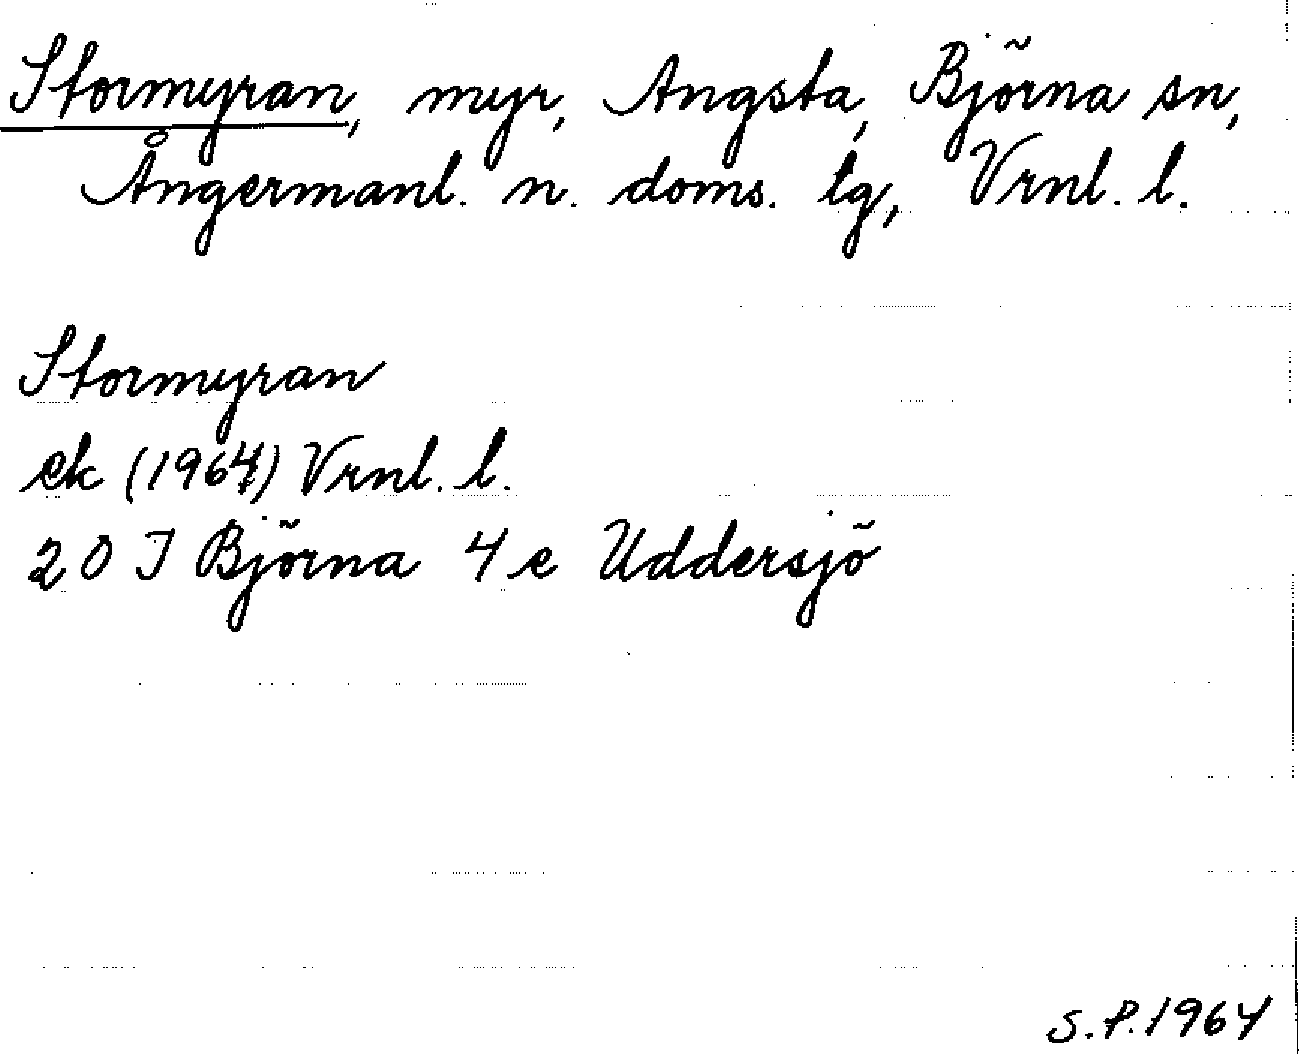 Stormyran, myr, Angsta, Björna sn,
Ångermanl. n. doms. lg, Vrnl. l.
Stormyran
ek (1964) Vrnl. l.
20 I Björna 4 e Uddersjö
S.P. 1964